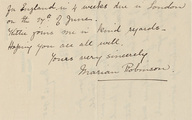 for England, in 4 weeks due in London
on the 27th of June.
Father joins me in kind regards.
Hoping you are all well,
Yours very sincerely
Marian Robinson.